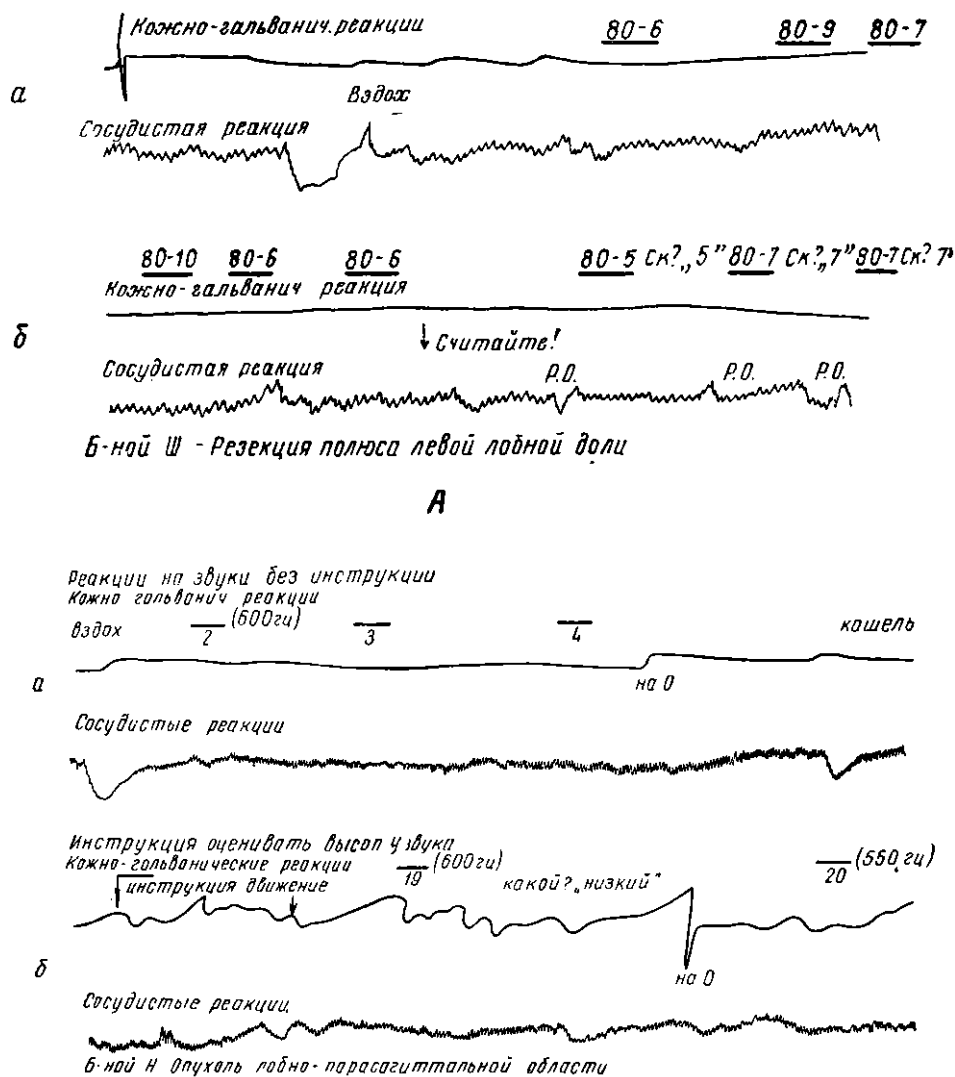 Кожно-гальванич. реакции 80-6 80-9 80-7
а
Вздох
Сосудистая реакция
80-10 80-6 80-6 80-5 Ск? „5” 80-7 Ск? „7” 80-7 Ск? 7"
Кожно-гальванич реакция
б
↓ Считайте!
Сосудистая реакция Р.О. Р.О. Р.О.
Б-ной Ш - Резекция полюса левой лобной доли
А
Реакции на звуки без инструкции
Кожно гальванич реакции
вздох 2 (600гц) 3 4 кашель
а
на 0
Сосудистые реакции
Инструкция оценивать высоту звука
Кожно-гальванические реакции 19 (600гц) 20 (550 гц)
инструкция движение какой? „низкий”
б
на 0
Сосудистые реакции
Б-ной Н Опухоль лобно-парасагиттальной области